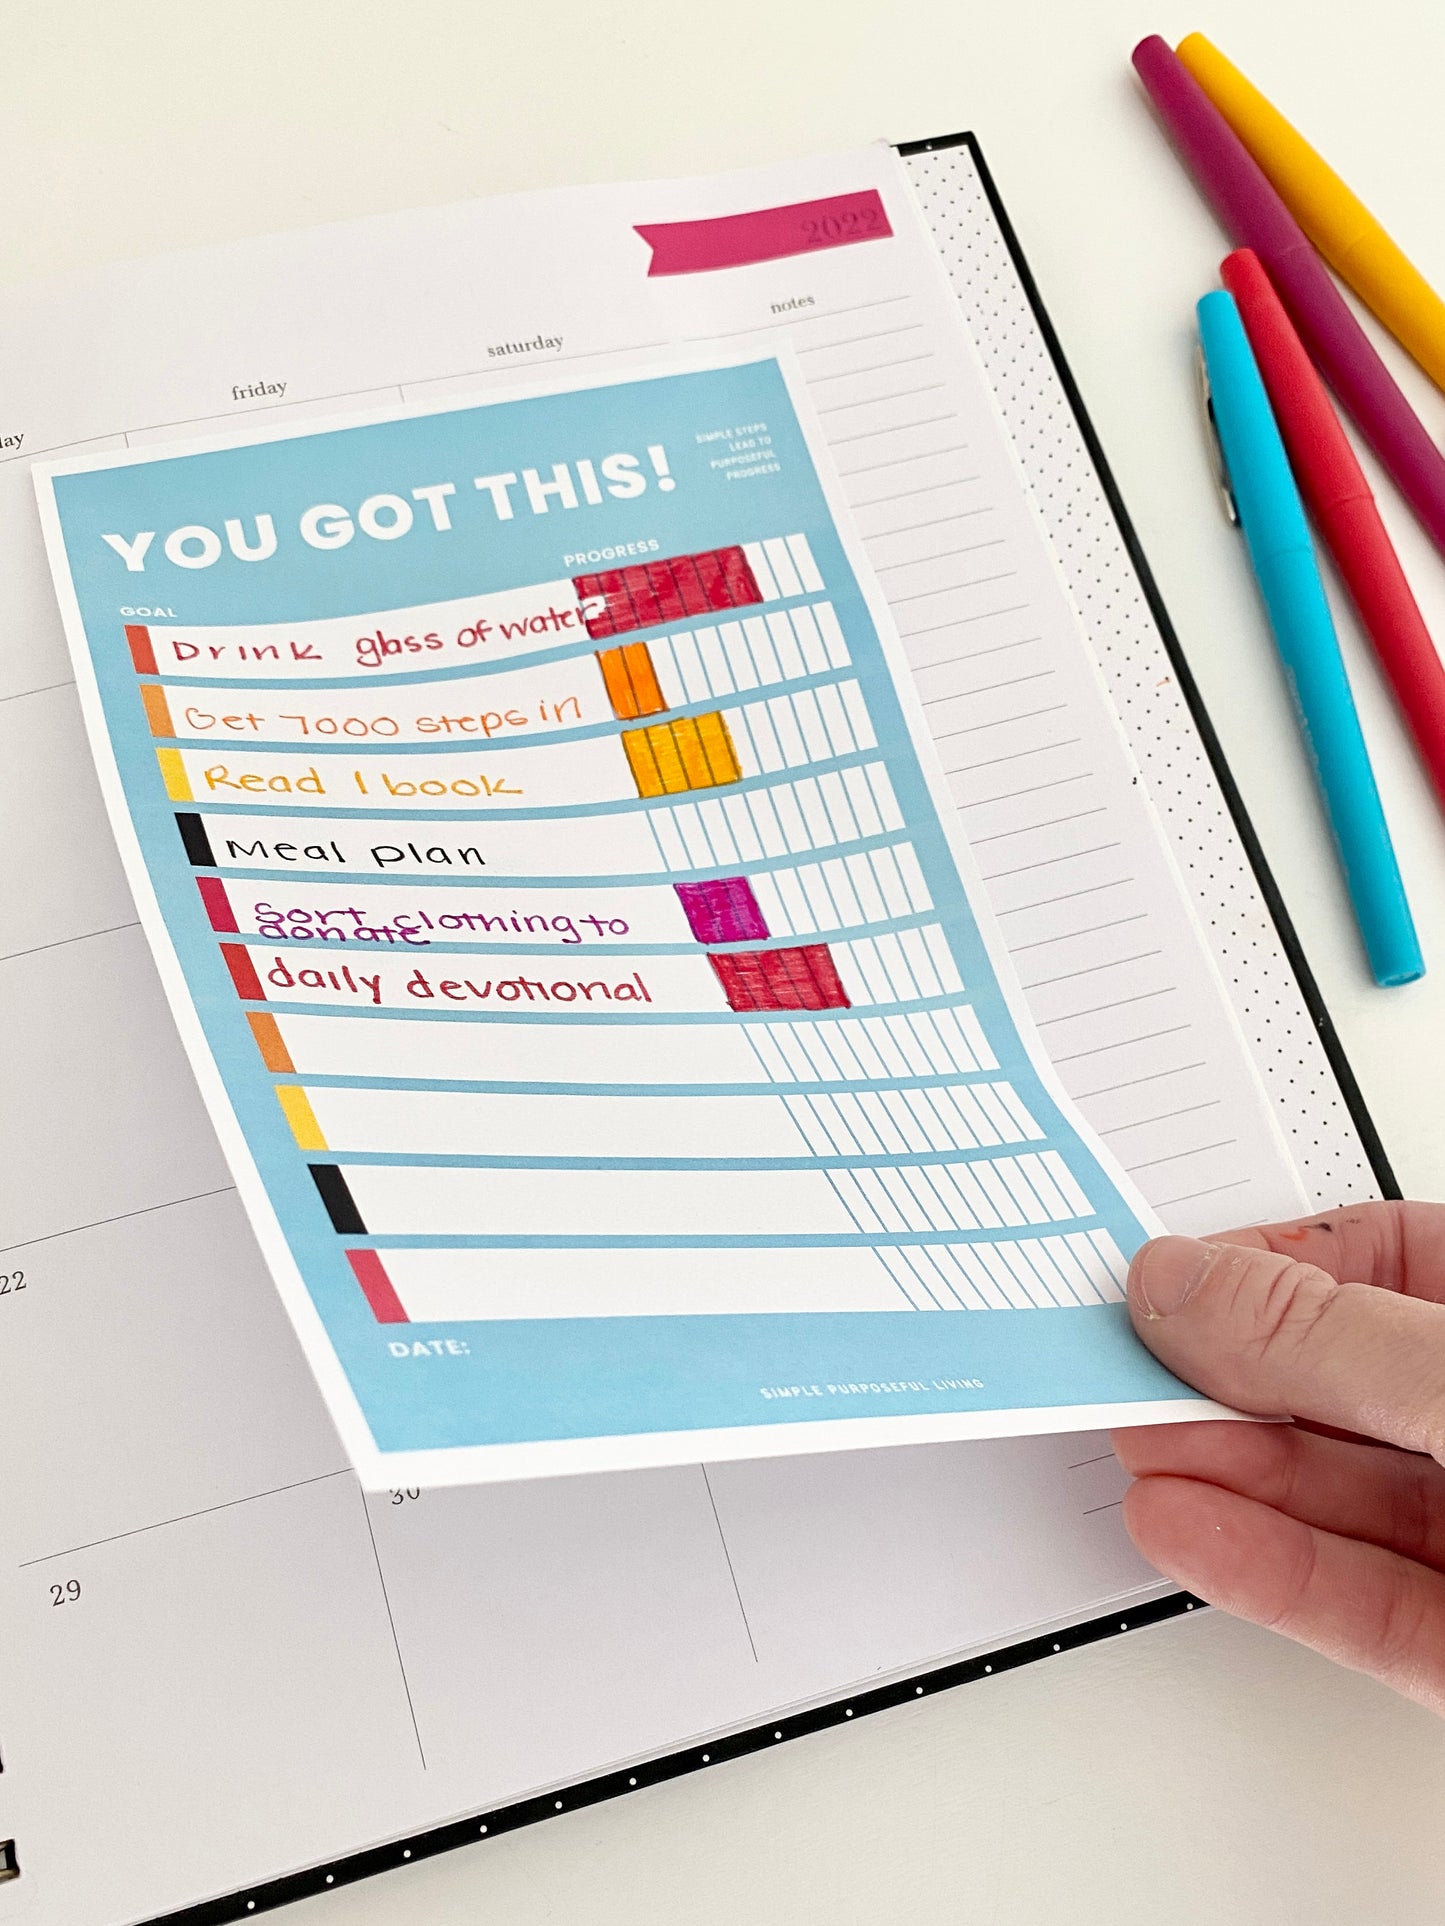 2022
notes
saturday
friday
day
YOU GOT THIS!
SIMPLE STEPS
LEAD TO
PURPOSEFUL
PROGRESS
PROGRESS
GOAL
Drink glass of water
Get 7000 steps in
Read 1 book
Meal plan
Sort clothing to
donate
daily devotional
DATE:
SIMPLE PURPOSEFUL LIVING
22
30
29